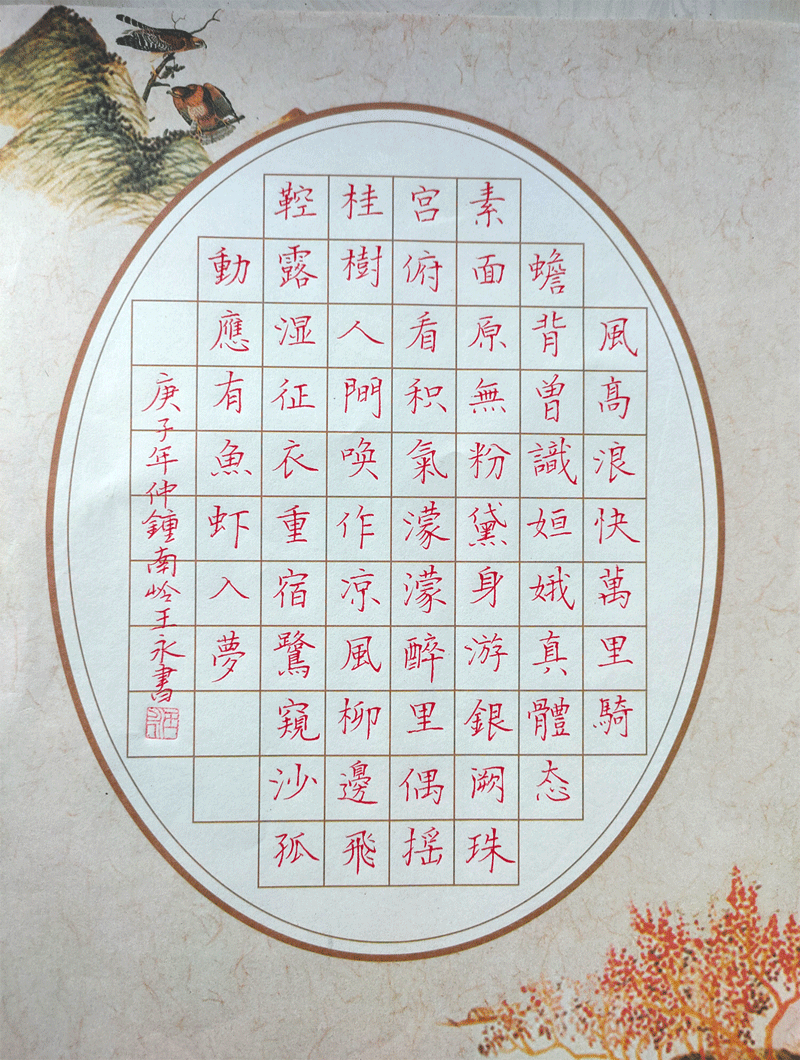 風高浪快萬里騎
蟾背曾識姮娥真體态
素面原無粉黛身游銀阙珠
宫俯看积氣濛濛醉里偶摇
桂樹人間唤作凉風柳邊飛
鞚露湿征衣重宿鷺窺沙孤
動應有魚虾入夢
庚子年仲鍾南岭王永書